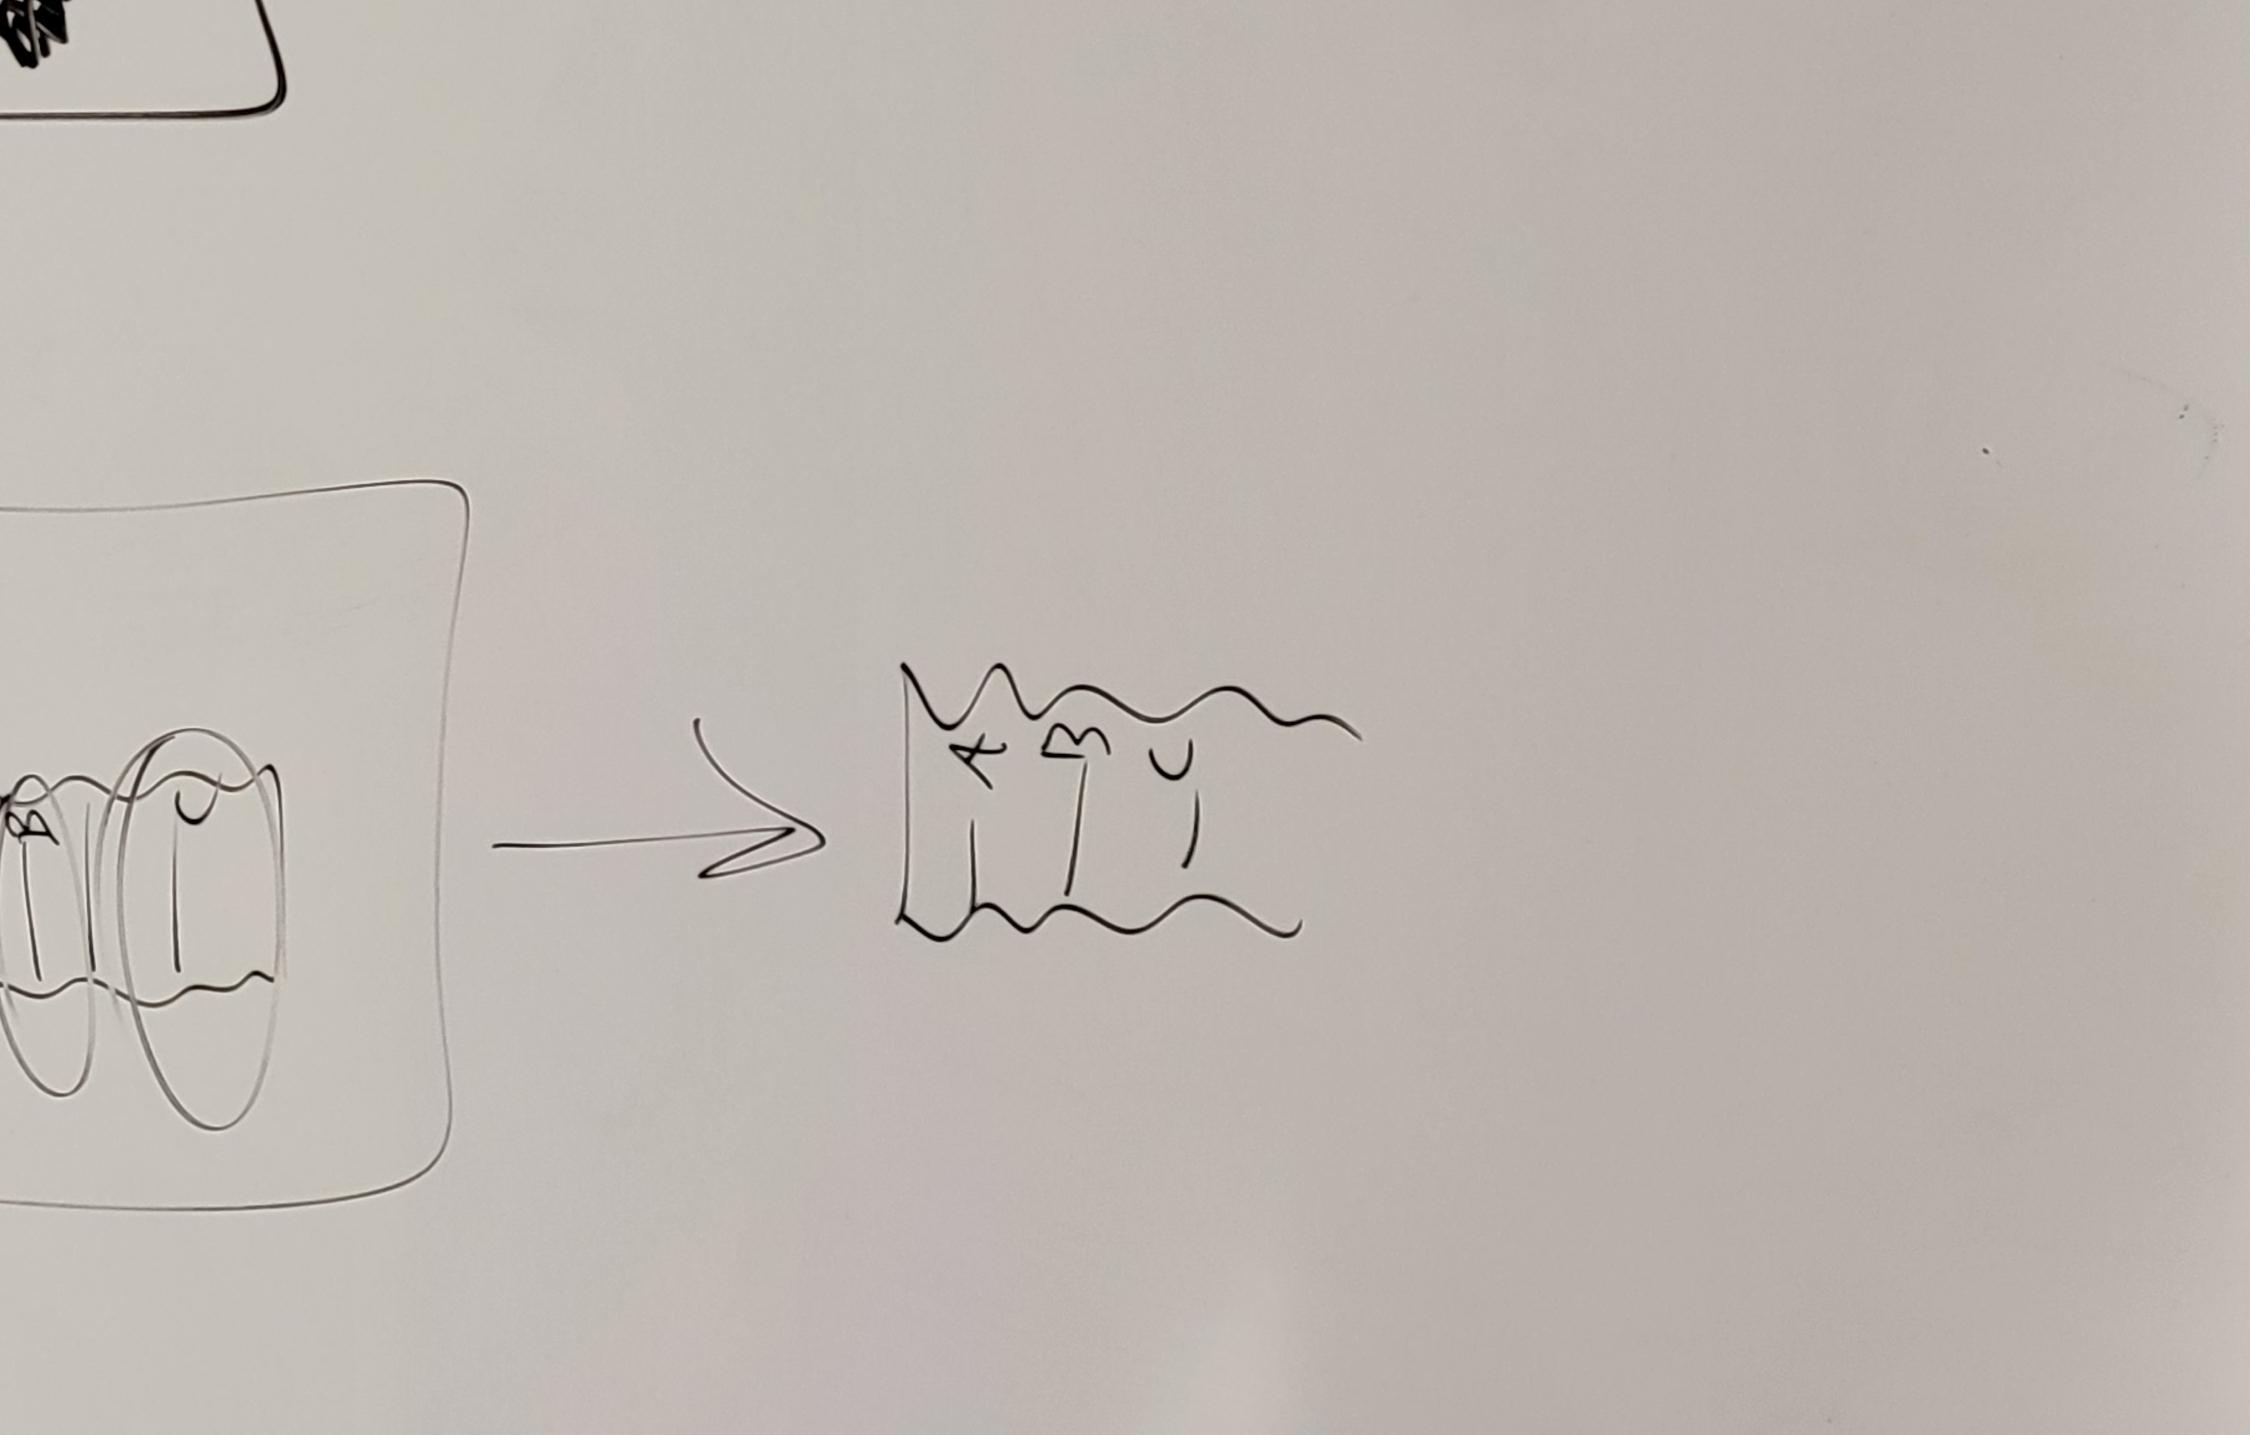 B C
A B C